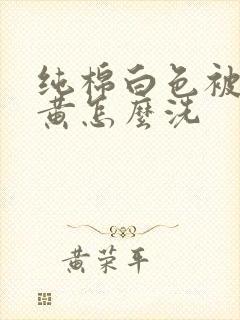 纯棉白色被
黄怎麼洗
黄荣平